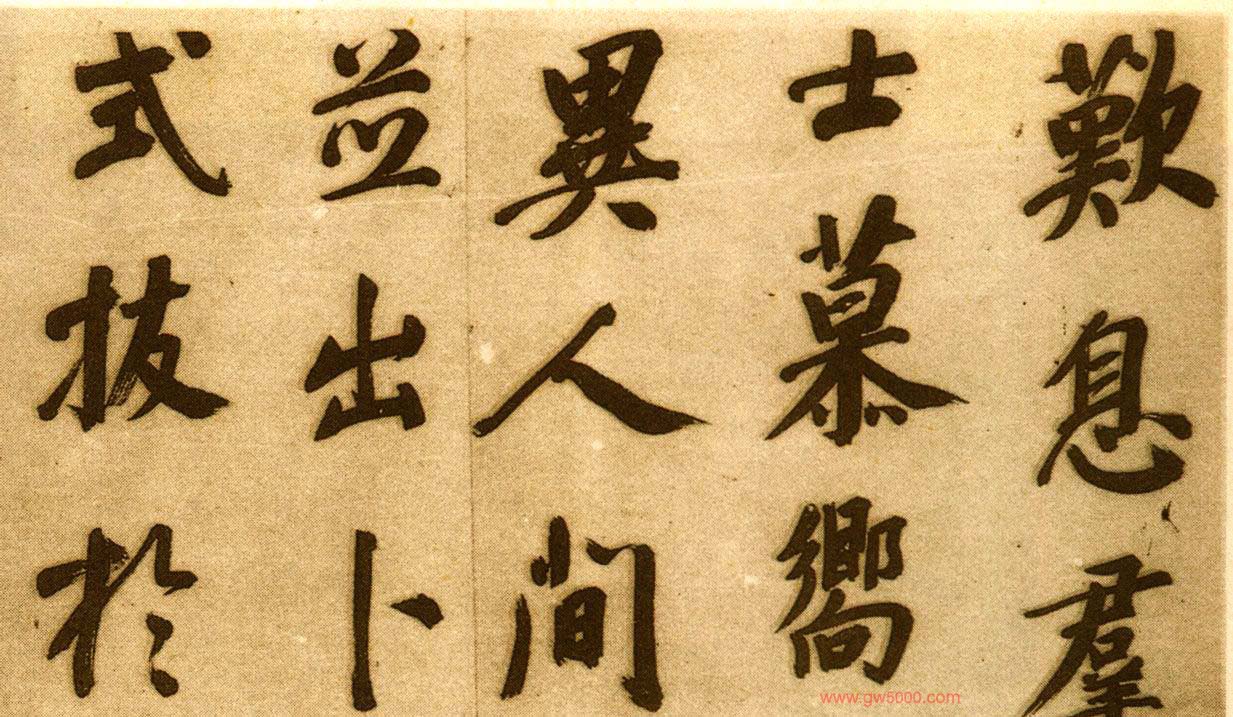 歎息羣
士慕嚮
異人間
並出卜
式拔於
www.gw5000.com